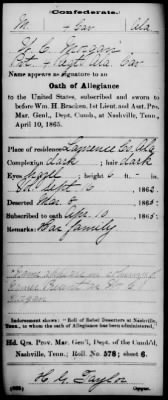 (Confederate.)
M. Cav Ala
H. C. Morgan
Pvt Ala Cav
Name appears as signature to an
Oath of Allegiance
to the United States, subscribed and sworn to
before Wm. H. Bracken, 1st Lieut. and Asst. Pro.
Mar. Genl., Dept. Cumb., at Nashville, Tenn.,
April 10, 1865.
Place of residence Lawrence Co. Ala
Complexion dark ; hair dark
Eyes ; height 6 ft. in.
Sept 16 186
Deserted Mar 8 , 186
Subscribed to oath Apr 10 , 1865
Remarks: Has family
Name
Morgan
Indorsement shows: "Roll of Rebel Deserters at Nashville,
Tenn., to whom the oath of Allegiance has been administered,
Hd. Qrs. Pro. Mar. Gen'l, Dept. of the Cumb'd
Nashville, Tenn.; Roll No. 578; sheet 6.
H. G. Taylor
Copyist.